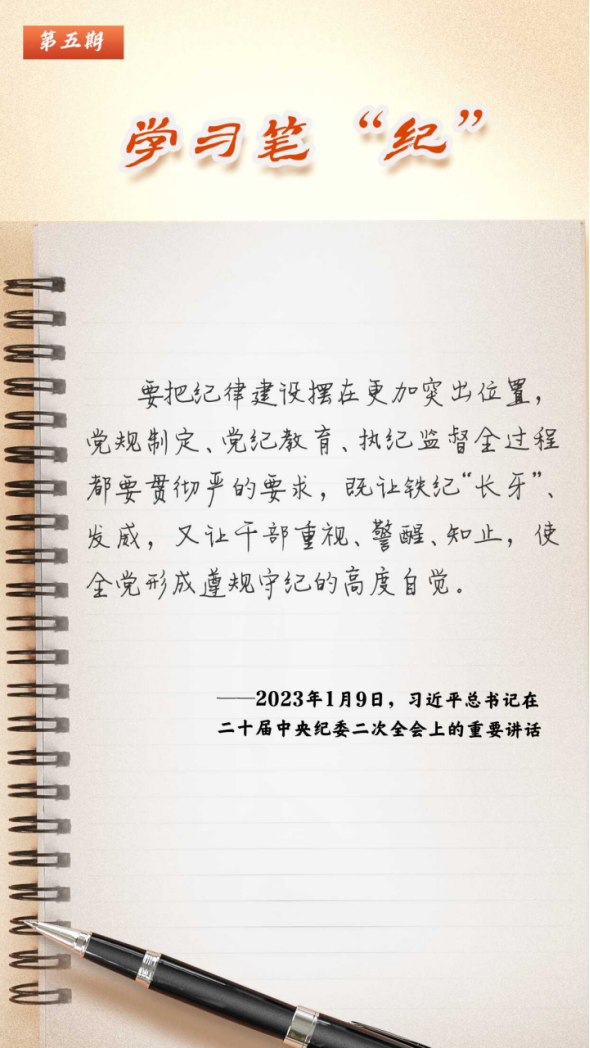 第五期
学习笔“纪”
要把纪律建设摆在更加突出位置，
党规制定、党纪教育、执纪监督全过程
都要贯彻严的要求，既让铁纪“长牙”、
发威，又让干部重视、警醒、知止，使
全党形成遵规守纪的高度自觉。
——2023年1月9日，习近平总书记在
二十届中央纪委二次全会上的重要讲话